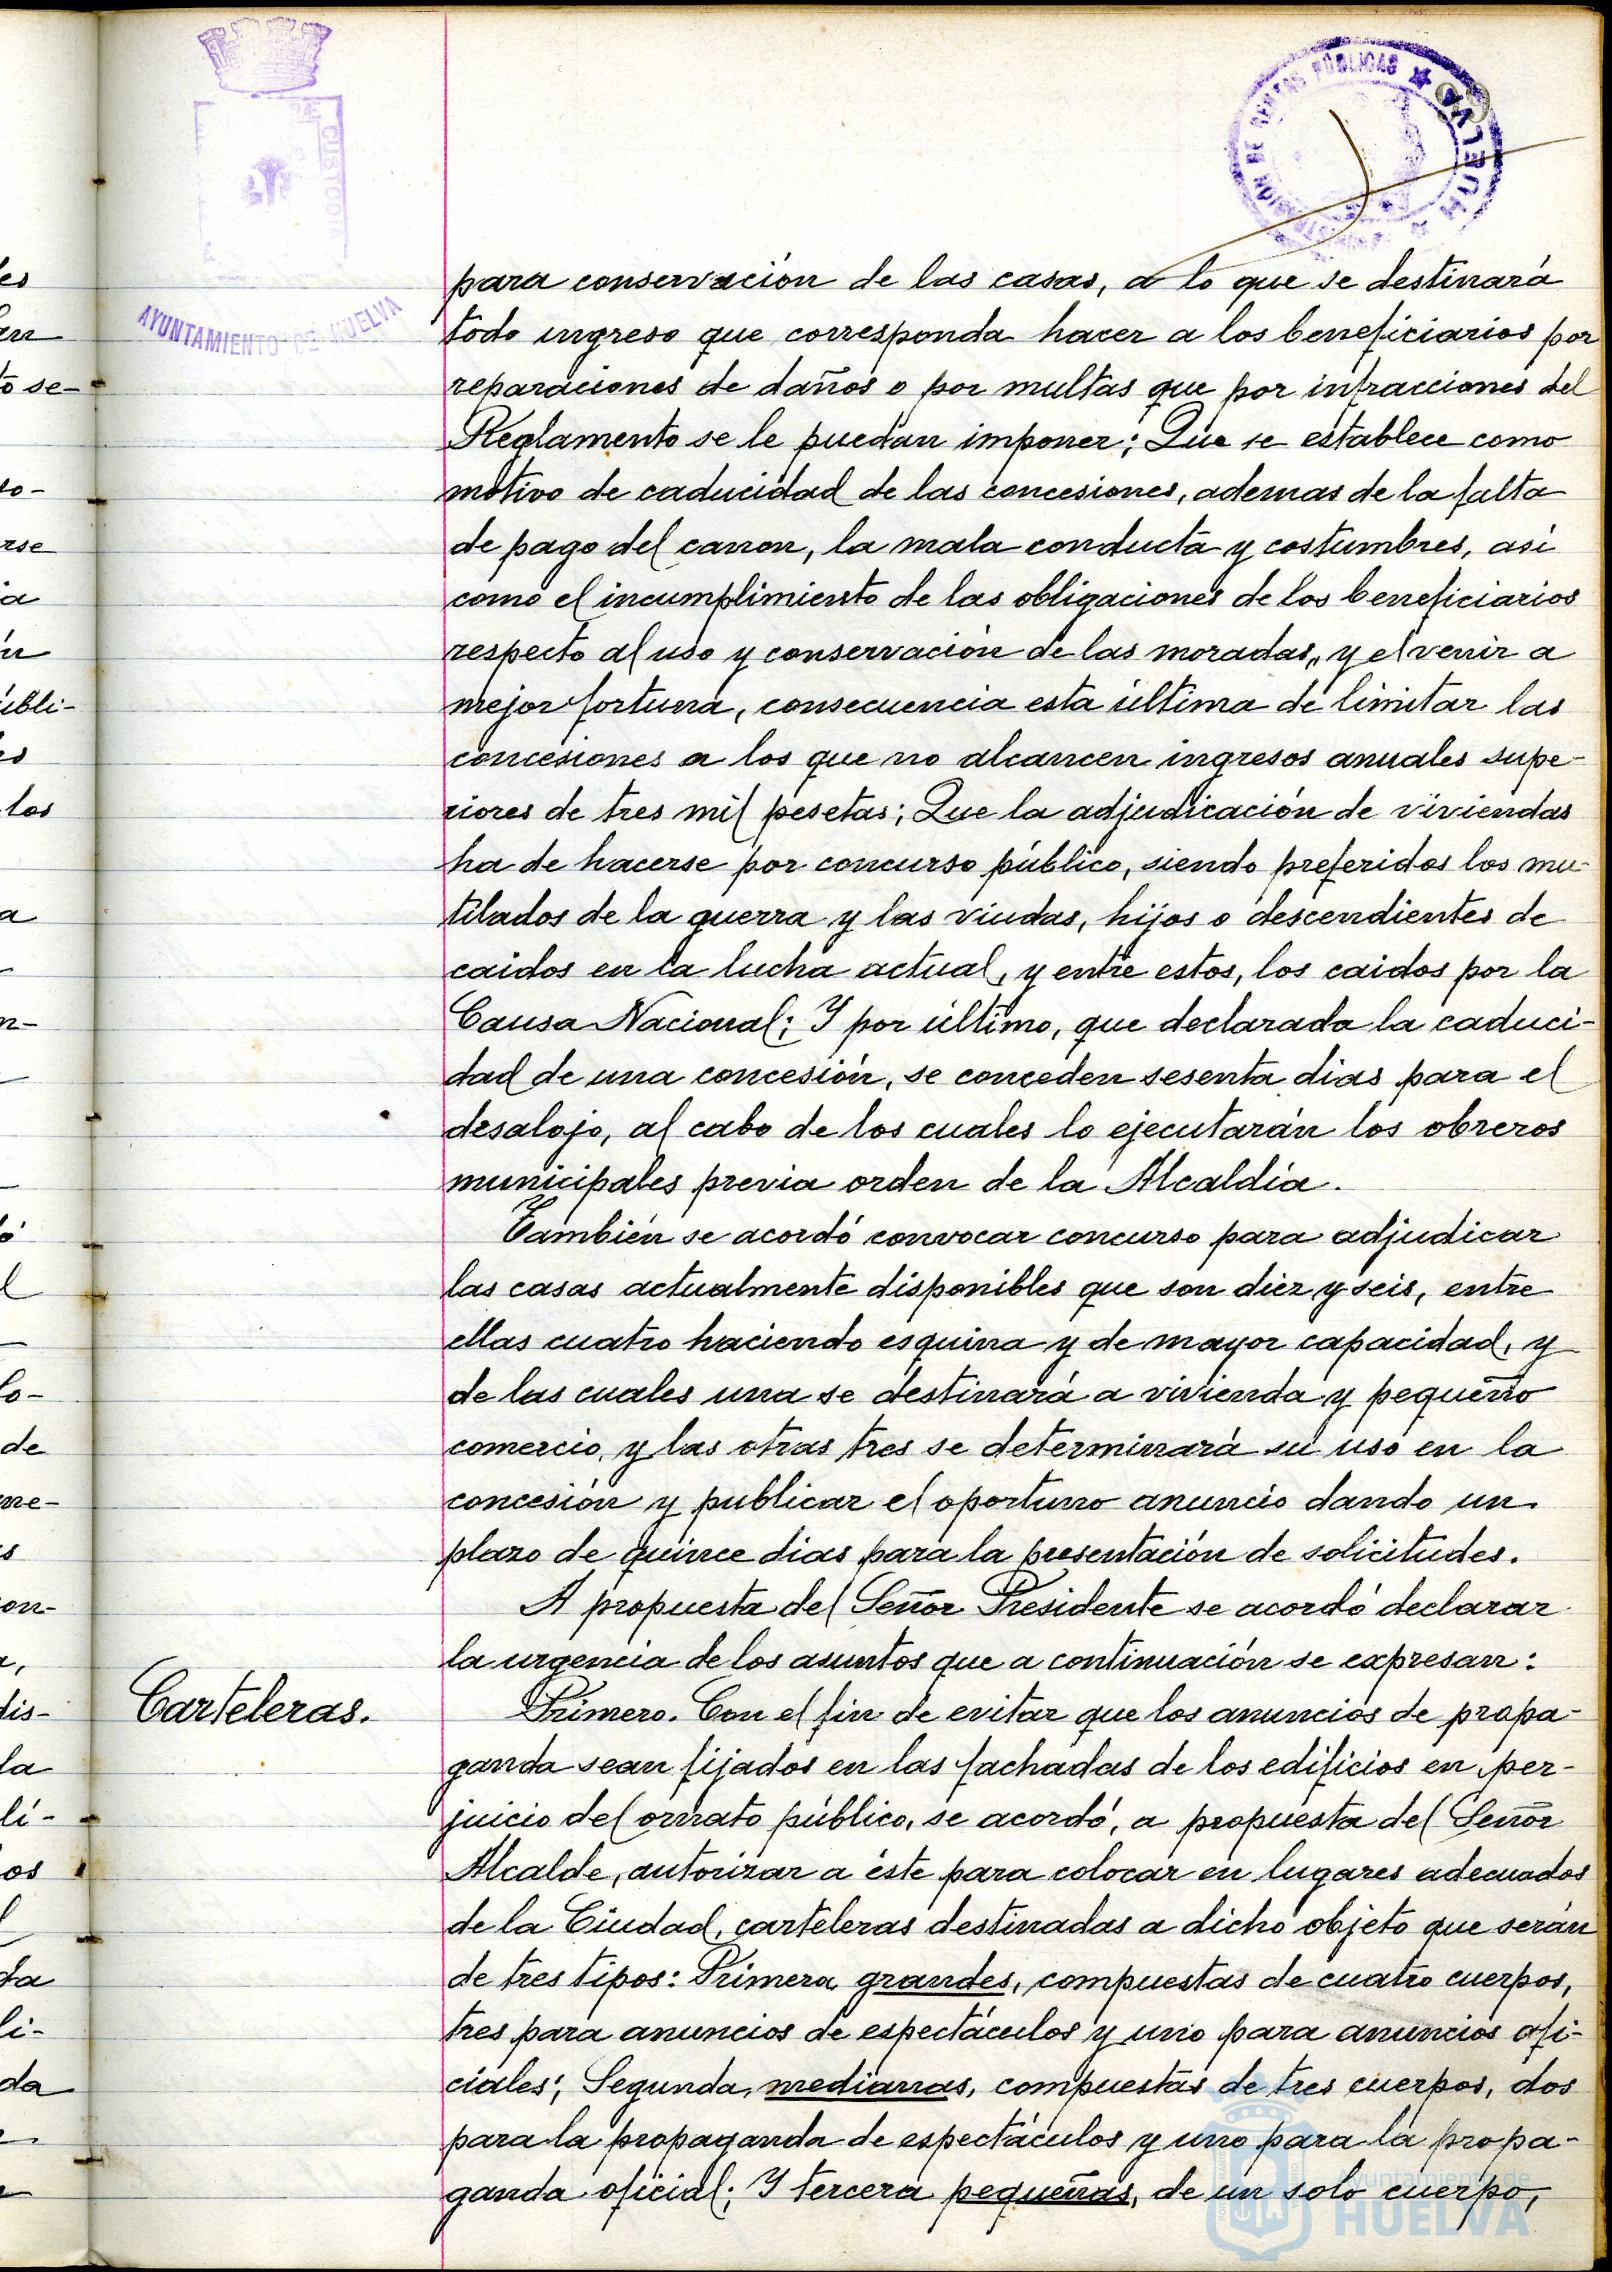 AYUNTAMIENTO DE HUELVA
PUBLICAS
HUELVA
para conservación de las casas, a lo que se destinará
todo ingreso que corresponda hacer a los beneficiarios por
reparaciones de daños o por multas que por infracciones del
Reglamento se le puedan imponer; Que se establece como
motivo de caducidad de las concesiones, ademas de la falta
de pago del canon, la mala conducta y costumbres, asi
como el incumplimiento de las obligaciones de los beneficiarios
respecto al uso y conservación de las moradas, y el venir a
mejor fortuna, consecuencia esta última de limitar las
concesiones a los que no alcancen ingresos anuales supe-
riores de tres mil pesetas; Que la adjudicación de viviendas
ha de hacerse por concurso público, siendo preferidos los mu-
tilados de la guerra y las viudas, hijos o descendientes de
caidos en la lucha actual, y entre estos, los caidos por la
Causa Nacional; Y por último, que declarada la caduci-
dad de una concesión, se conceden sesenta dias para el
desalojo, al cabo de los cuales lo ejecutarán los obreros
municipales previa orden de la Alcaldía.
También se acordó convocar concurso para adjudicar
las casas actualmente disponibles que son diez y seis, entre
ellas cuatro haciendo esquina y de mayor capacidad, y
de las cuales una se destinará a vivienda y pequeño
comercio, y las otras tres se determinará su uso en la
concesión y publicar el oportuno anuncio dando un
plazo de quince dias para la presentación de solicitudes.
A propuesta del Señor Presidente se acordó declarar
la urgencia de los asuntos que a continuación se expresan:
Carteleras.
Primero. Con el fin de evitar que los anuncios de propa-
ganda sean fijados en las fachadas de los edificios en per-
juicio del ornato público, se acordó, a propuesta del Señor
Alcalde, autorizar a éste para colocar en lugares adecuados
de la Ciudad, carteleras destinadas a dicho objeto que serán
de tres tipos: Primera grandes, compuestas de cuatro cuerpos,
tres para anuncios de espectáculos y uno para anuncios ofi-
ciales; Segunda, medianas, compuestas de tres cuerpos, dos
para la propaganda de espectáculos y uno para la propa-
ganda oficial; Y tercera pequeñas, de un solo cuerpo,
Ayuntamiento de
HUELVA